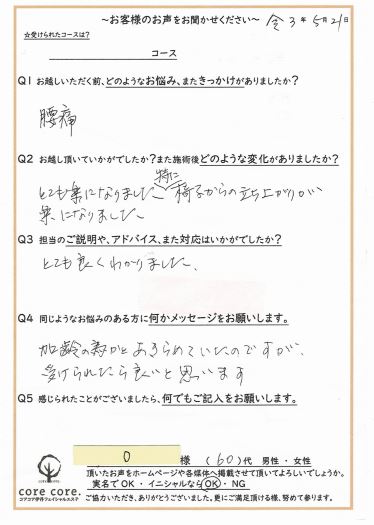 ～お客様のお声をお聞かせください～ 令3年5月21日
☆受けられたコースは？
コース
Q1 お越しいただく前、どのようなお悩み、またきっかけがありましたか？
腰痛
Q2 お越し頂いていかがでしたか？また施術後どのような変化がありましたか？
とても楽になりました 特に 椅子からの立ち上がりが
楽になりました
Q3 担当のご説明や、アドバイス、また対応はいかがでしたか？
とても良くわかりました、
Q4 同じようなお悩みのある方に何かメッセージをお願いします。
加齢の為かとあきらめていたのですが、
受けられたら良いと思います
Q5 感じられたことがございましたら、何でもご記入をお願いします。
O 様 （60）代 男性・女性
頂いたお声をホームページや各媒体へ掲載させて頂いてよろしいでしょうか。
実名でOK・イニシャルならOK・NG
core core.
コアコア伊丹フェイシャルエステ
ご協力いただき、ありがとうございました。更にご満足頂ける様、努めて参ります。